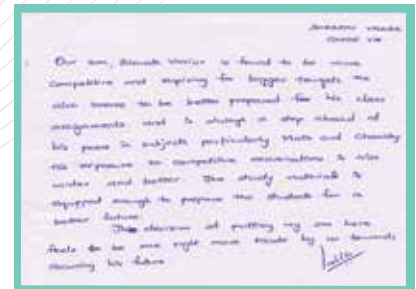 Our son, Verma is found to be more
competitive and aspiring for bigger targets. He
also seems to be better prepared for his class
assignments and is always a step ahead of
his peers in subjects particularly Maths and Chemistry
His exposure to competitive examinations is also
wider and better. The study material is
equipped enough to prepare the students for a
better future.
This decision of putting my son here
feels to be one right move made by us towards
securing his future